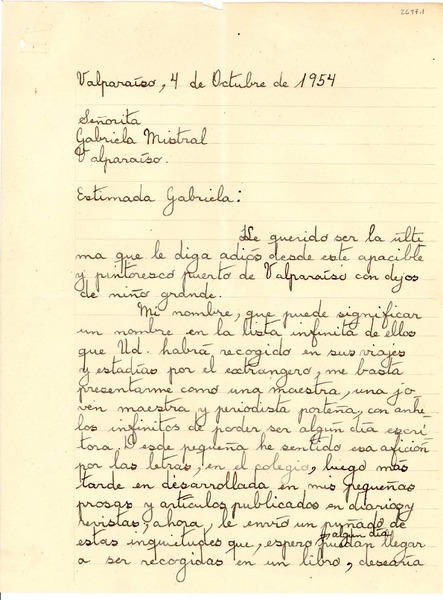 2697.1
Valparaíso, 4 de Octubre de 1954
Señorita
Gabriela Mistral
Valparaíso.
Estimada Gabriela:
He querido ser la últi
ma que le diga adiós desde este apacible
y pintoresco puerto de Valparaíso con dejos
de niño grande.
Mi nombre, que puede significar
un nombre en la lista infinita de ellos
que Ud. habrá recogido en sus viajes
y estadías por el extrangero, me basta
presentarme como una maestra, una jo-
ven maestra y periodista porteña, con anhe
los infinitos de poder ser algún día escri
tora. Desde pequeña he sentido esa afición
por las letras, en el colegio, luego más
tarde en desarrollada en mis pequeñas
prosas y artículos publicados en diarios y
revistas; ahora, le envío un puñado de
estas inquietudes que, espero algún día puedan llegar
a ser recogidas en un libro, desearía